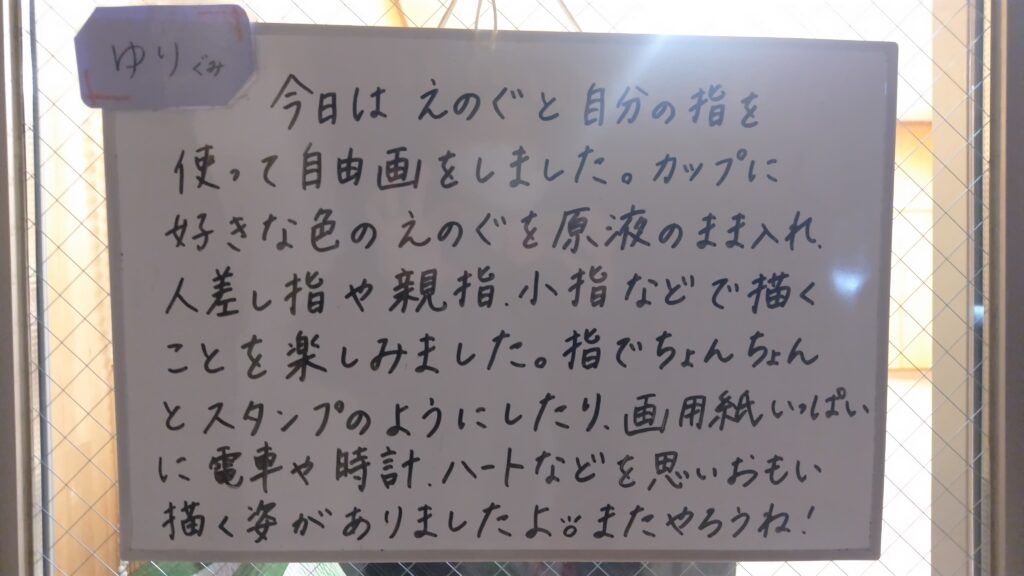 ゆりぐみ
今日は えのぐと 自分の指を
使って自由画をしました。カップに
好きな色の えのぐを原液のまま入れ、
人差し指や親指、小指などで描く
ことを楽しみました。指でちょんちょん
とスタンプのようにしたり、画用紙いっぱい
に電車や時計、ハートなどを思いおもい
描く姿がありましたよ。またやろうね!